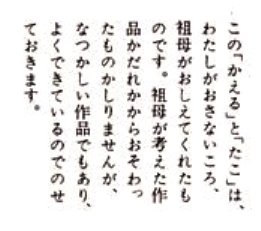 この「かえる」と「たこ」は、
わたしがおさないころ、
祖母がおしえてくれたも
のです。祖母が考えた作
品かだれかからおそわっ
たものかしりませんが、
なつかしい作品でもあり、
よくできているのでのせ
ておきます。